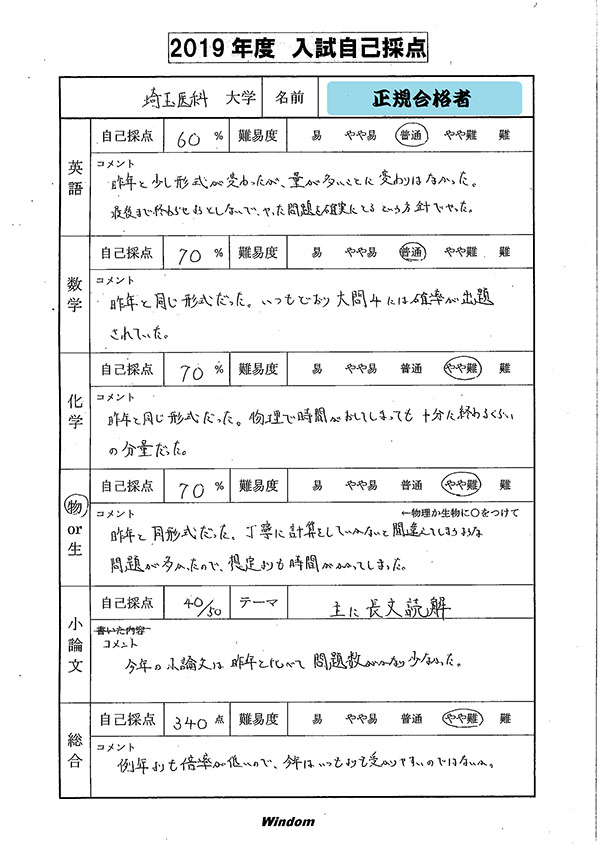 2019年度 入試自己採点
埼玉医科 大学 名前 正規合格者
英語 自己採点 60 % 難易度 易 やや易 普通 やや難 難
コメント
昨年と少し形式が変わったが、量が多いことに変わりはなかった。
最後まで終わらせようとしないで、やった問題を確実にとるという方針でやった。
数学 自己採点 70 % 難易度 易 やや易 普通 やや難 難
コメント
昨年と同じ形式だった。いつもどおり大問4には確率が出題
されていた。
化学 自己採点 70 % 難易度 易 やや易 普通 やや難 難
コメント
昨年と同じ形式だった。物理で時間がおしてしまっても十分に終わるくらい
の分量だった。
物or生 自己採点 70 % 難易度 易 やや易 普通 やや難 難
コメント ←物理か生物に○をつけて
昨年と同形式だった。丁寧に計算をしていかないと間違えてしまうような
問題が多かったので、想定よりも時間がかかってしまった。
小論文 自己採点 40/50 テーマ 主に長文読解
書いた内容
コメント
今年の小論文は昨年と比べて問題数がかなり少なかった。
総合 自己採点 340 点 難易度 易 やや易 普通 やや難 難
コメント
例年よりも倍率が低いので、今年はいつもよりも受かりやすいのではないか。
Windom